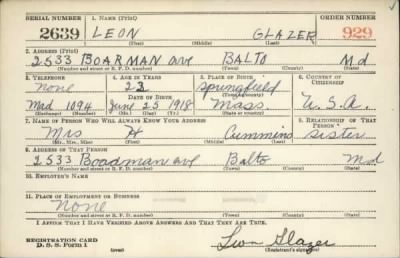 SERIAL NUMBER 1. NAME (Print) ORDER NUMBER
2639 LEON GLAZER 929
(First) (Middle) (Last)
2. ADDRESS (Print)
2533 BOARMAN ave BALTO Md
(Number and street or R. F. D. number) (Town) (County) (State)
3. TELEPHONE 4. AGE IN YEARS 5. PLACE OF BIRTH 6. COUNTRY OF CITIZENSHIP
None 22 Springfield
DATE OF BIRTH
Mad 1094 June 25 1918 Mass. U.S.A.
(Exchange) (Number) (Mo.) (Day) (Yr.) (State or country)
7. NAME OF PERSON WHO WILL ALWAYS KNOW YOUR ADDRESS 8. RELATIONSHIP OF THAT PERSON
Mrs H Cummins sister
(Mr., Mrs., Miss) (First) (Middle) (Last)
9. ADDRESS OF THAT PERSON
2533 Boadman ave Balto Md
(Number and street or R. F. D. number) (Town) (County) (State)
10. EMPLOYER'S NAME
11. PLACE OF EMPLOYMENT OR BUSINESS
None
(Number and street or R. F. D. number) (Town) (County) (State)
I AFFIRM THAT I HAVE VERIFIED ABOVE ANSWERS AND THAT THEY ARE TRUE.
REGISTRATION CARD
D. S. S. Form 1 (over) Leon Glazer
(Registrant's signature)